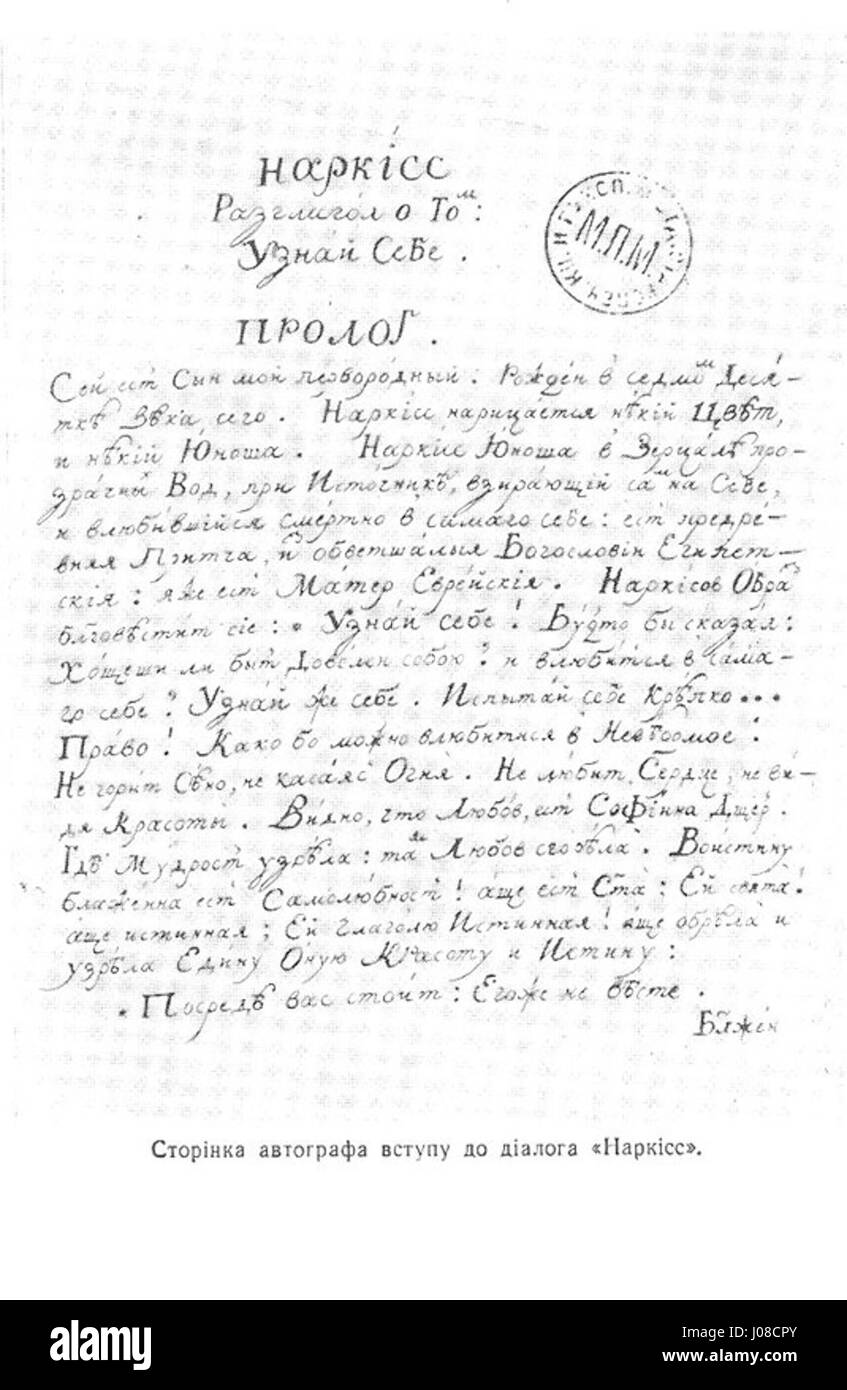 НАРКІСС
Разглагол о Том:
Узнай Себе.
М.П.М.
ПРОЛОГ.
Сей ест Сын мой первородный. Рожден в седмом Деся-
ткѣ Вѣка сего. Наркісс нарицается нѣкій Цвѣт,
и нѣкій Юноша. Наркісс Юноша в Зерцалѣ про-
зрачных Вод, при Источникѣ, взирающій сам на Себе,
и влюбившійся смертно в самаго себе: ест предре-
вняя Притча, из обветшалыя Богословіи Египет-
скія: яже ест Матер Еврейскія. Наркісов Образ
благовѣстит сіе: "Узнай себе! Будто бы сказал:
Хощеши ли быт Доволен собою? и влюбится в сама-
го себе? Узнай же себе. Испытай себе Крѣпко...
Право! Како бо можно влюбитися в Невѣдомое?
Не горит Сѣно, не касаясь Огня. Не любит Сердце, не ви-
дя Красоты. Видно, что Любов ест Софіина Дщер.
Гдѣ Мудрост узрѣла: там Любов сгорѣла. Воистину
блаженна ест Самолюбност! аще ест Ста: Ей свята!
аще истинная; Ей глаголю Истинная! аще обрѣла и
узрѣла Едину Оную Красоту и Истину:
"Посредѣ вас стоит: Егоже не вѣсте.
Блжен
Сторінка автографа вступу до діалога «Наркісс».
alamy
Image ID: J08CPY
www.alamy.com